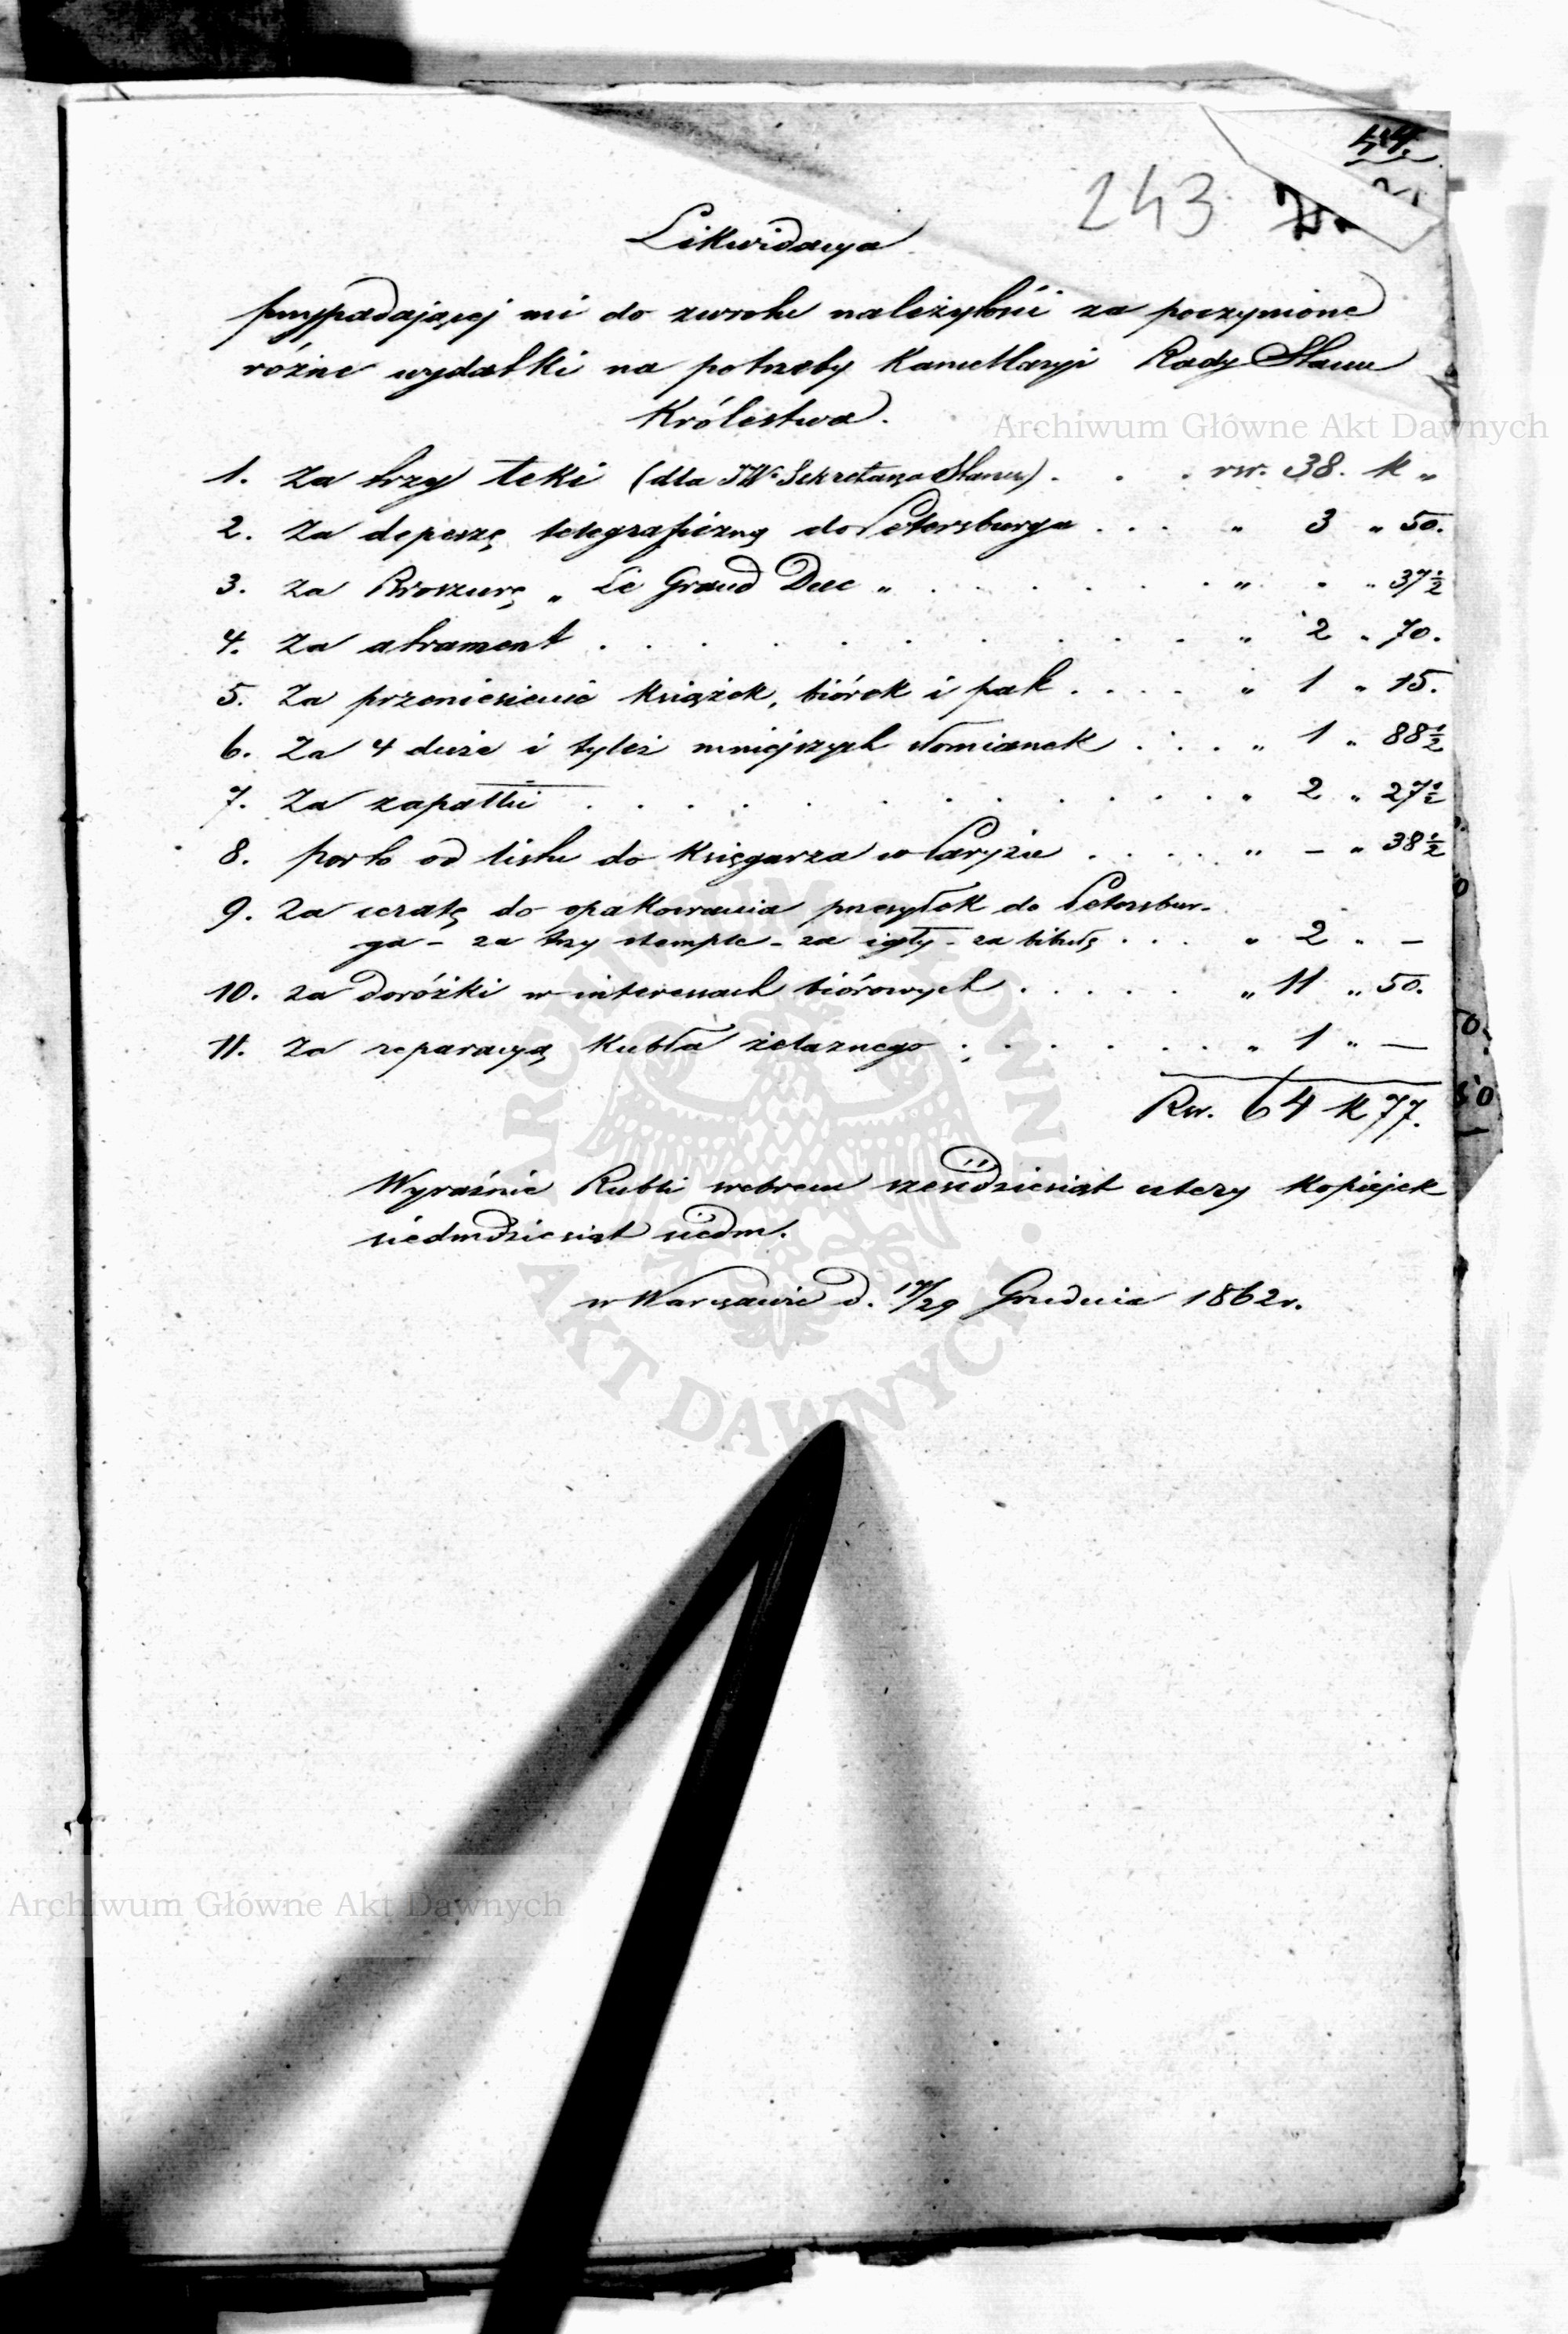 44.
243
Likwidacya
przypadającej mi do zwrotu należytości za poczynione
różne wydatki na potrzeby Kancellaryi Rady Stanu
Królestwa.
1. Za trzy teki (dla JW. Sekretarza Stanu) . . . rsr. 38. k „
2. Za depeszę telegraficzną do Petersburga . . . „ 3 „ 50.
3. Za Broszurę „ Le Grand Duc „ . . . . . . „ . „ 37½
4. Za atrament . . . . . . . . . . „ 2 „ 70.
5. Za przeniesienie książek, biórek i pak . . . . „ 1 „ 15.
6. Za 4 duże i tyleż mniejszych słomianek . . . . „ 1 „ 88½
7. Za zapałki . . . . . . . . . . . . „ 2 „ 27½
8. porto od listu do Księgarza w Paryżu . . . . „ — „ 38½
9. Za ceratę do opakowania przesyłek do Petersbur-
ga – za trzy stemple – za igły – za bibułę . . . „ 2 „ —
10. za dorożki w interessach biórowych . . . . . „ 11 „ 50.
11. Za reparacyą Kubła żelaznego . . . . . . . „ 1 „ —
Rsr. 64 k 77.
Wyraźnie Rubli srebrem sześćdziesiąt cztery kopiejek
siedmdziesiąt siedm.
w Warszawie d. 17/29 Grudnia 1862 r.
Archiwum Główne Akt Dawnych
ARCHIWUM GŁÓWNE AKT DAWNYCH
Archiwum Główne Akt Dawnych